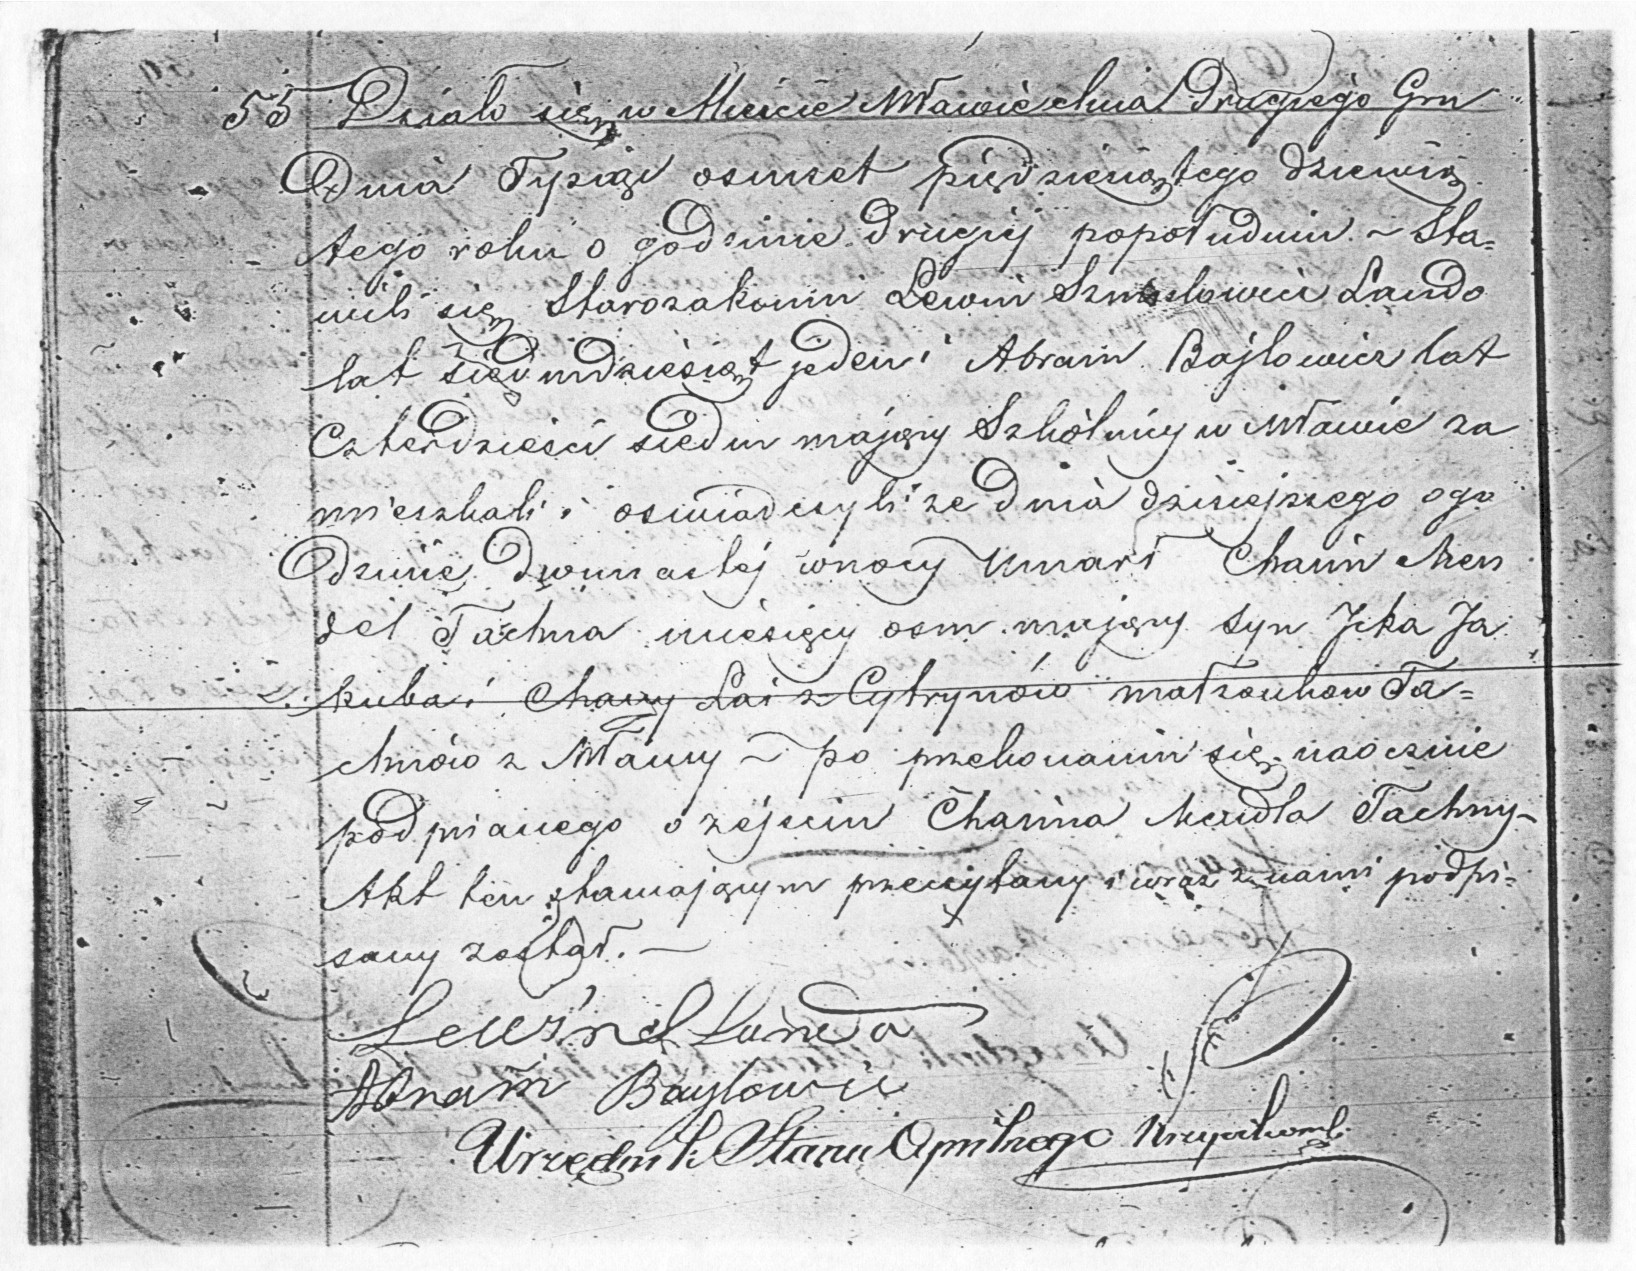 55 Działo się w Mieście Mławie dnia Drugiego Gru
Dnia Tysiąc osmset piędziesiątego dziewią
tego roku o godzinie drugiej popołudniu ~ Sta=
wili się Starozakonni Lewin Szmulowicz Lando
lat siedmdziesiąt jeden i Abram Bajlowicz lat
Czterdzieści siedm mający Szkólnicy w Mławie za
mieszkali i oswiadczyli że dnia dzisiejszego o go
dzinie dwunastej w nocy Umarł Chaim Men
del Tachna miesięcy osm mający syn Icka Ja
kuba i Chawy Łai z Cytrynów małżonków Ta=
chnów z Mławy ~ po przekonaniu się naocznie
podpisanego o zejsciu Chaima Mendla Tachny ~
Akt ten stawającym przeczytany i wraz z nami podpi=
sany został. —
Lewin S Landa
Abram Baylowic
Urzędnik Stanu Cywilnego